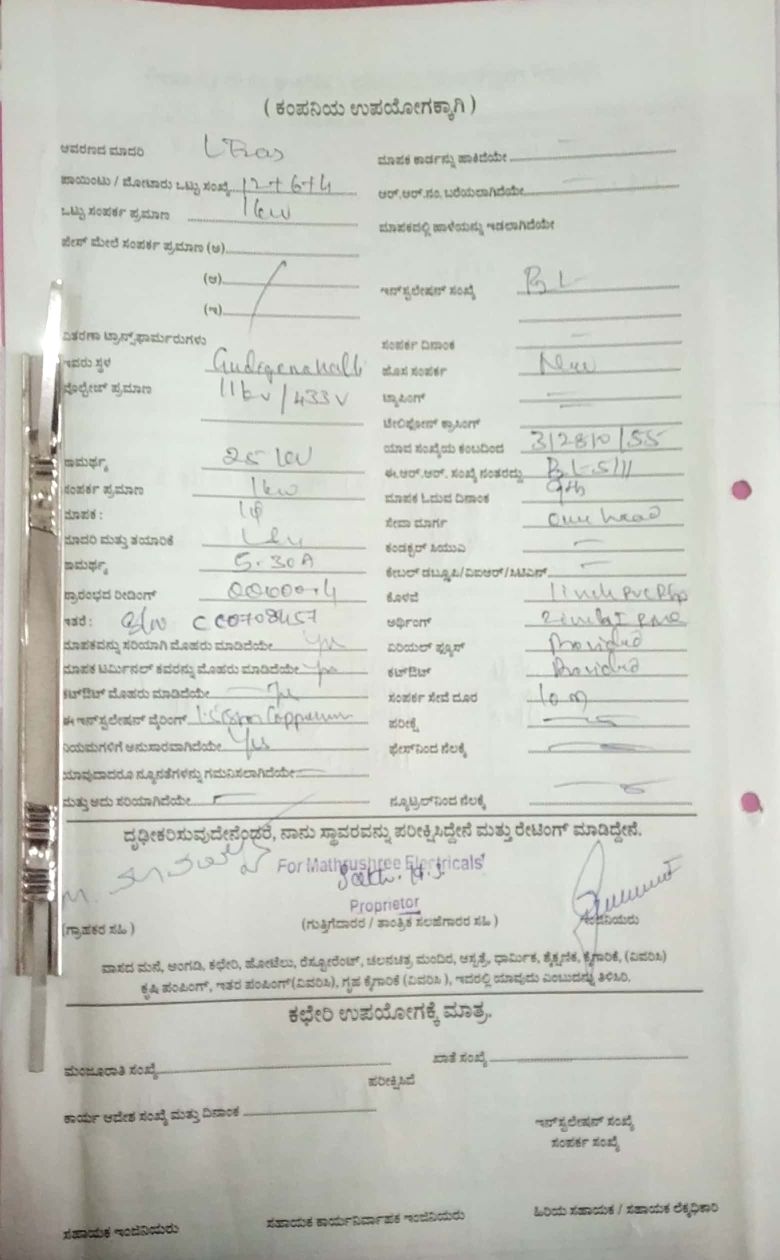 ( ಕಂಪನಿಯ ಉಪಯೋಗಕ್ಕಾಗಿ )
ಆವರಣದ ಮಾದರಿ
ಪಾಯಿಂಟು / ಮೋಟಾರು ಒಟ್ಟು ಸಂಖ್ಯೆ 12+6+4
ಒಟ್ಟು ಸಂಪರ್ಕ ಪ್ರಮಾಣ 1kw
ಫೇಸ್ ಮೇಲೆ ಸಂಪರ್ಕ ಪ್ರಮಾಣ (ಅ)
(ಆ)
(ಇ)
ವಿತರಣಾ ಟ್ರಾನ್ಸ್‌ಫಾರ್ಮರುಗಳು
ಇವರು ಸ್ಥಳ
ವೊಲ್ಟೇಜ್ ಪ್ರಮಾಣ 11kv/433v
ಸಾಮರ್ಥ್ಯ 25
ಸಂಪರ್ಕ ಪ್ರಮಾಣ 1kw
ಮಾಪಕ : 1φ
ಮಾದರಿ ಮತ್ತು ತಯಾರಿಕೆ
ಸಾಮರ್ಥ್ಯ 5-30A
ಪ್ರಾರಂಭದ ರೀಡಿಂಗ್
ಇತರೆ :
ಮಾಪಕವನ್ನು ಸರಿಯಾಗಿ ಮೊಹರು ಮಾಡಿದೆಯೇ yes
ಮಾಪಕ ಟರ್ಮಿನಲ್ ಕವರನ್ನು ಮೊಹರು ಮಾಡಿದೆಯೇ yes
ಕಟ್‌ಔಟ್ ಮೊಹರು ಮಾಡಿದೆಯೇ yes
ಈ ಇನ್‌ಸ್ಟಲೇಷನ್ ವೈರಿಂಗ್
ನಿಯಮಗಳಿಗೆ ಅನುಸಾರವಾಗಿದೆಯೇ Yes
ಯಾವುದಾದರೂ ನ್ಯೂನತೆಗಳನ್ನು ಗಮನಿಸಲಾಗಿದೆಯೇ
ಮತ್ತು ಅದು ಸರಿಯಾಗಿದೆಯೇ
ಮಾಪಕ ಕಾರ್ಡನ್ನು ಹಾಕಿದೆಯೇ
ಆರ್.ಆರ್.ನಂ. ಬರೆಯಲಾಗಿದೆಯೇ
ಮಾಪಕದಲ್ಲಿ ಹಾಳೆಯನ್ನು ಇಡಲಾಗಿದೆಯೇ
ಇನ್‌ಸ್ಟಲೇಷನ್ ಸಂಖ್ಯೆ BL
ಸಂಪರ್ಕ ದಿನಾಂಕ
ಹೊಸ ಸಂಪರ್ಕ New
ಟ್ಯಾಪಿಂಗ್
ಟೆಲಿಫೋನ್ ಕ್ರಾಸಿಂಗ್
ಯಾವ ಸಂಖ್ಯೆಯ ಕಂಬದಿಂದ
ಈ.ಆರ್.ಆರ್. ಸಂಖ್ಯೆ ನಂತರದ್ದು
ಮಾಪಕ ಓದುವ ದಿನಾಂಕ 9th
ಸೇವಾ ಮಾರ್ಗ
ಕಂಡಕ್ಟರ್ ಸಿಯುವಿ
ಕೇಬಲ್ ಡಬ್ಲ್ಯೂಪಿ/ವಿಐಆರ್/ಸಿಟಿಎಸ್
ಕೊಳವೆ
ಅರ್ಥಿಂಗ್
ಏರಿಯಲ್ ಫ್ಯೂಸ್ Provided
ಕಟ್‌ಔಟ್ Provided
ಸಂಪರ್ಕ ಸೇವೆ ದೂರ 10 m
ಪರೀಕ್ಷೆ
ಫೇಸ್‌ನಿಂದ ನೆಲಕ್ಕೆ
ನ್ಯೂಟ್ರಲ್‌ನಿಂದ ನೆಲಕ್ಕೆ
ದೃಢೀಕರಿಸುವುದೇನೆಂದರೆ, ನಾನು ಸ್ಥಾವರವನ್ನು ಪರೀಕ್ಷಿಸಿದ್ದೇನೆ ಮತ್ತು ರೇಟಿಂಗ್ ಮಾಡಿದ್ದೇನೆ.
For Mathrushree Electricals
Proprietor
(ಗ್ರಾಹಕರ ಸಹಿ )
(ಗುತ್ತಿಗೆದಾರರ / ತಾಂತ್ರಿಕ ಸಲಹೆಗಾರರ ಸಹಿ )
ಇಂಜಿನಿಯರು
ವಾಸದ ಮನೆ, ಅಂಗಡಿ, ಕಛೇರಿ, ಹೋಟೆಲು, ರೆಸ್ಟೋರೆಂಟ್, ಚಲನಚಿತ್ರ ಮಂದಿರ, ಆಸ್ಪತ್ರೆ, ಧಾರ್ಮಿಕ, ಶೈಕ್ಷಣಿಕ, ಕೈಗಾರಿಕೆ, (ವಿವರಿಸಿ)
ಕೃಷಿ ಪಂಪಿಂಗ್, ಇತರ ಪಂಪಿಂಗ್(ವಿವರಿಸಿ), ಗೃಹ ಕೈಗಾರಿಕೆ (ವಿವರಿಸಿ ), ಇದರಲ್ಲಿ ಯಾವುದು ಎಂಬುದನ್ನು ತಿಳಿಸಿರಿ.
ಕಛೇರಿ ಉಪಯೋಗಕ್ಕೆ ಮಾತ್ರ.
ಮಂಜೂರಾತಿ ಸಂಖ್ಯೆ
ಖಾತೆ ಸಂಖ್ಯೆ
ಪರೀಕ್ಷಿಸಿದೆ
ಕಾರ್ಯ ಆದೇಶ ಸಂಖ್ಯೆ ಮತ್ತು ದಿನಾಂಕ
ಇನ್‌ಸ್ಟಲೇಷನ್ ಸಂಖ್ಯೆ
ಸಂಪರ್ಕ ಸಂಖ್ಯೆ
ಸಹಾಯಕ ಇಂಜಿನಿಯರು
ಸಹಾಯಕ ಕಾರ್ಯನಿರ್ವಾಹಕ ಇಂಜಿನಿಯರು
ಹಿರಿಯ ಸಹಾಯಕ / ಸಹಾಯಕ ಲೆಕ್ಕಧಿಕಾರಿ